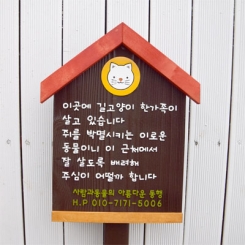 이곳에 길고양이 한가족이
살고 있습니다
쥐를 박멸시키는 이로운
동물이니 이 근처에서
잘 살도록 배려해
주심이 어떨까 합니다
사람과동물의 아름다운 동행
H.P 010-7171-5006